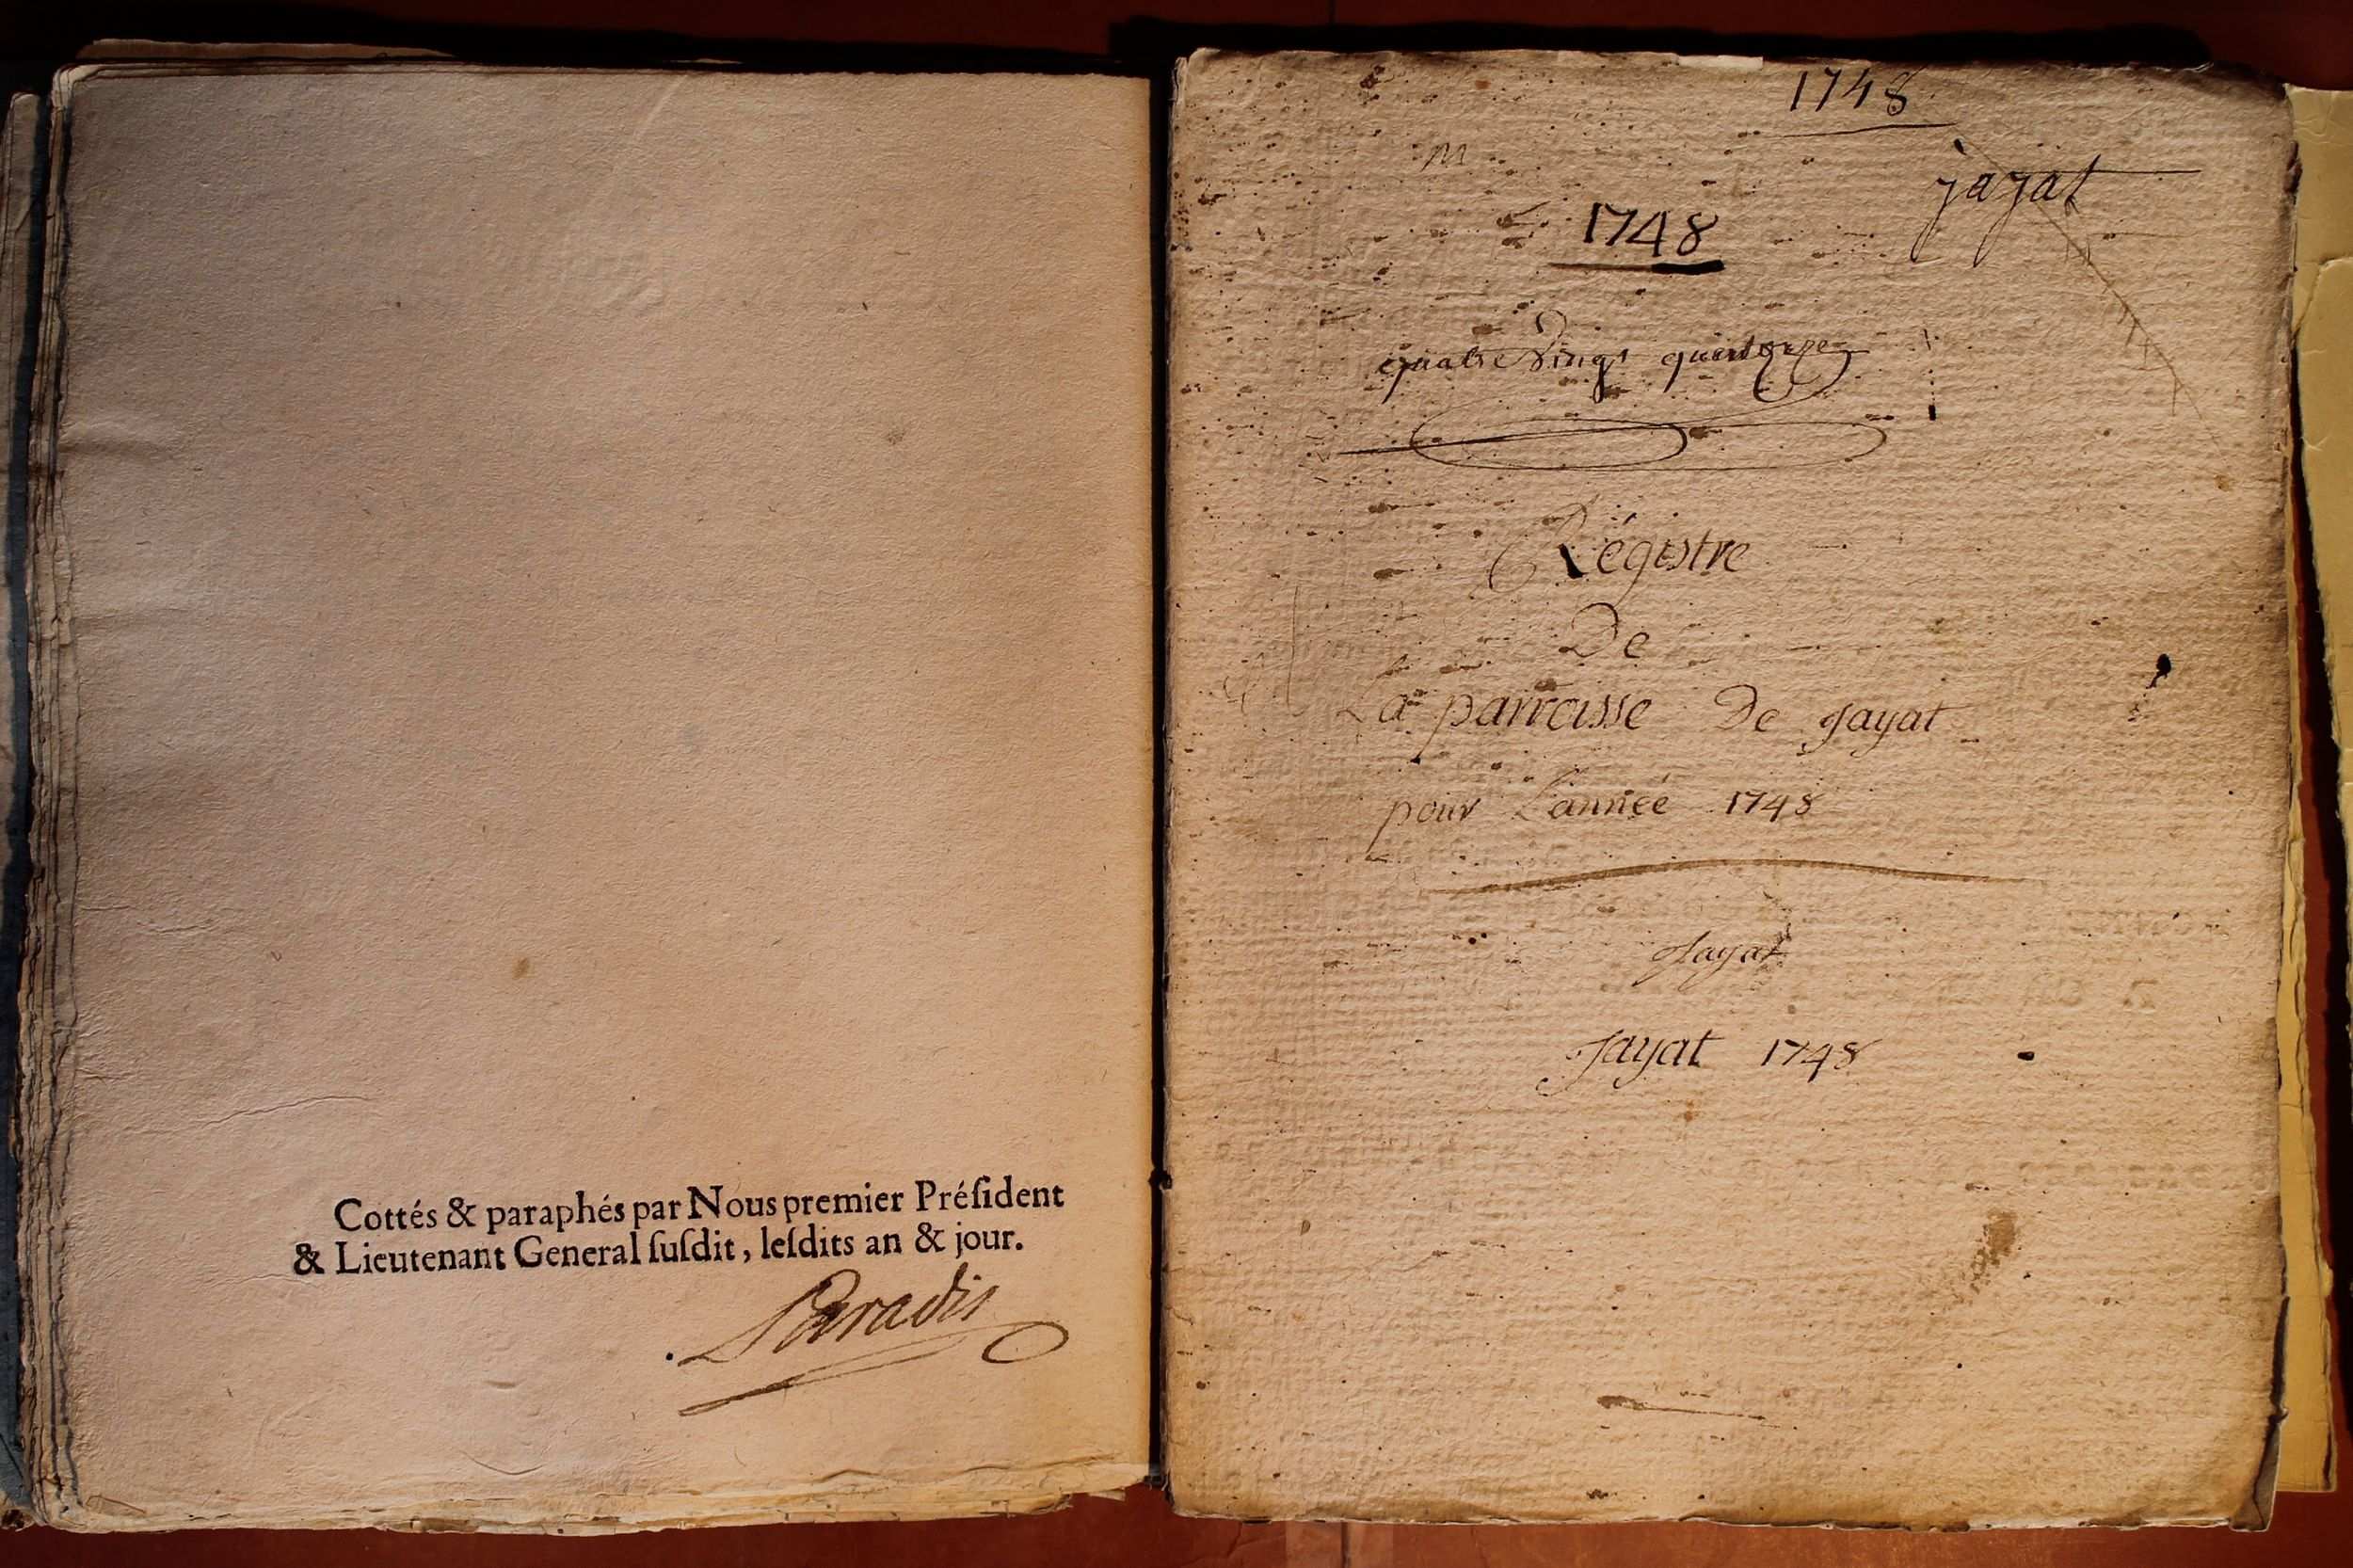 Cottés & paraphés par Nous premier Préſident
& Lieutenant General ſuſdit, leſdits an & jour.
Paradis
1748
jayat
1748
quatre Vingt quatorze
Régistre
De
La parroisse De jayat
pour L'année 1748
Jayat
Jayat 1748